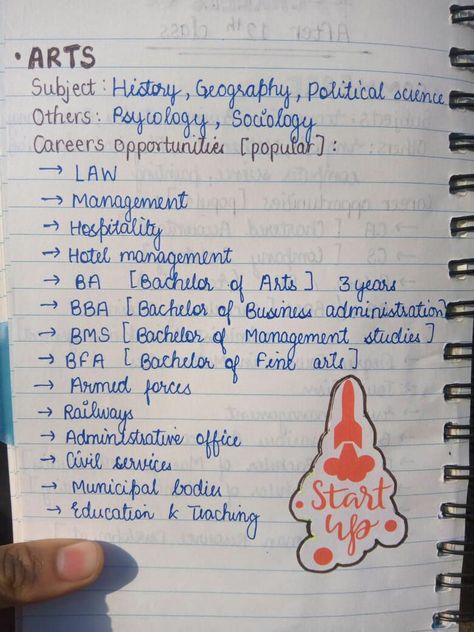 • ARTS
Subject : History, Geography, Political science
Others : Psycology, Sociology
Careers opportunities [popular] :
→ LAW
→ Management
→ Hospitality
→ Hotel management
→ BA [Bachelor of Arts] 3 years
→ BBA [Bachelor of Business administration]
→ BMS [Bachelor of Management studies]
→ BFA [Bachelor of Fine arts]
→ Armed forces
→ Railways
→ Administrative office
→ Civil services
→ Municipal bodies
→ Education & Teaching
Start
up
After 12th class